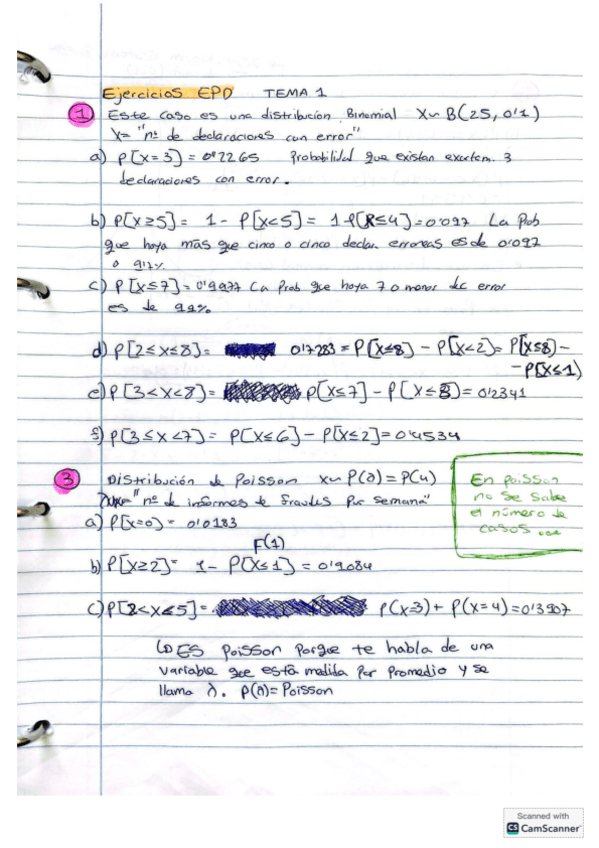 Ejercicios EPD TEMA 1
1 Este caso es una distribución Binomial X~B(25, 0'1)
X= "nº de declaraciones con error"
a) P[X=3] = 0'2265 Probabilidad que existan exactam. 3
declaraciones con error.
b) P[X≥5] = 1 - P[X<5] = 1-P[X≤4] = 0'097 La Prob
que haya más que cinco o cinco declar. erroneas es de 0'097
o 9'7%
c) P[X≤7] = 0'9977 La Prob que haya 7 o menos dec error
es de 99%
d) P[2≤X≤8] = 0'7283 = P[X≤8] - P[X<2] = P[X≤8] -
- P[X≤1]
e) P[3<X<8] = P[X≤7] - P[X≤3] = 0'2341
f) P[3≤X<7] = P[X≤6] - P[X≤2] = 0'4534
3 Distribución de Poisson X~P(λ) = P(4)
"nº de informes de fraudes por semana"
a) P[X=0] = 0'0183
F(1)
b) P[X≥2] = 1 - P[X≤1] = 0'9084
c) P[2<X≤5] = P(X=3) + P(X=4) = 0'3907
ES Poisson porque te habla de una
variable que está medida por promedio y se
llama λ. P(λ) = Poisson
En poisson
no se sabe
el número de
casos ...
Scanned with
CS CamScanner